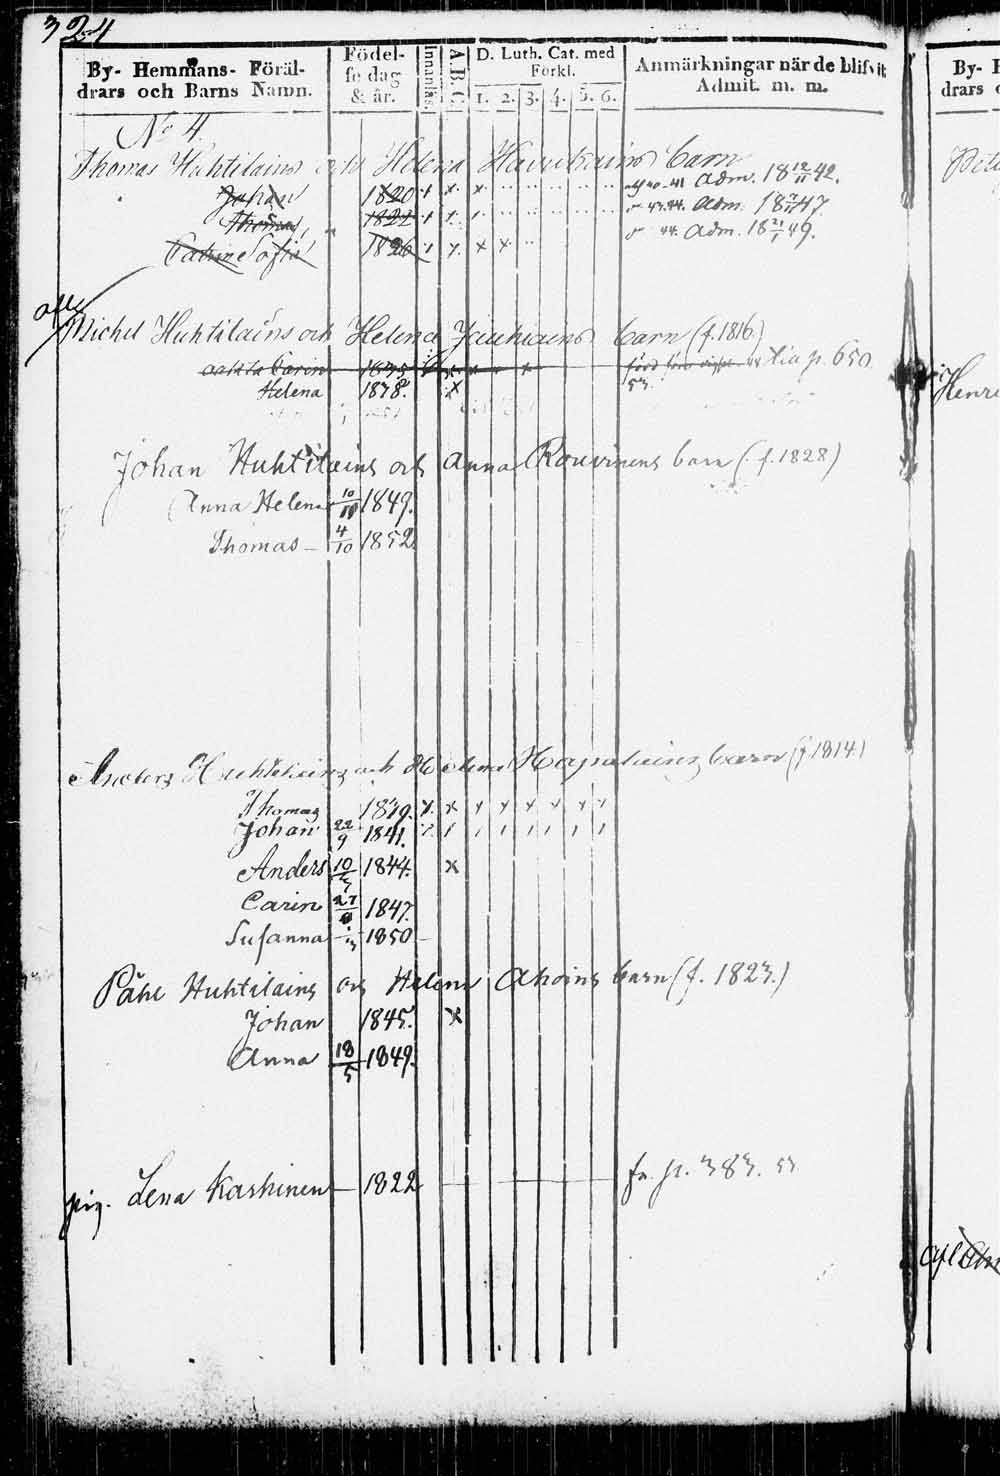 324
By- Hemmans- Föräl-
drars och Barns Namn.
Födel-
se dag
& år.
Innanläs.
A B C.
D. Luth. Cat. med
Förkl.
1. 2. 3. 4. 5. 6.
Anmärkningar när de blifvit
Admit. m. m.
No 4.
Thomas Huhtilains och Helena Haukains barn
Johan 1820 Adm. 18 12/11 42.
Thomas 1822 Adm. 18 47.
Catrine Sofia 1826 44. Adm. 18 49.
Michel Huhtilains och Helena barn (f. 1816.)
Carin 1835 p. 650
Helena 1838. 53.
Johan Huhtilains och Anna Rouvinens barn (f. 1828)
Anna Helena 10/11 1849.
Thomas 4/10 1852.
Anders Huhtilains och Helena barn (f 1814)
Thomas 1839.
Johan 22/9 1841.
Anders 10 1844.
Carin 27 1847.
Susanna 1850
Påhl Huhtilains och Helena Ahoins barn (f. 1823.)
Johan 1845.
Anna 18/5 1849.
pig. Lena Kashinen 1822 fr. p. 383. 53
By-
drars
Henri